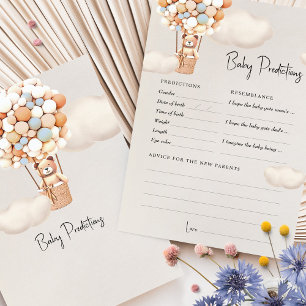 Baby Predictions
PREDICTIONS
RESEMBLANCE
Gender
Date of birth
I hope the baby gets mom's ...
Time of birth
Weight
I hope the baby gets dad's ...
Length
I imagine the baby being ...
Eye color
ADVICE FOR THE NEW PARENTS
Love
Baby Predictions